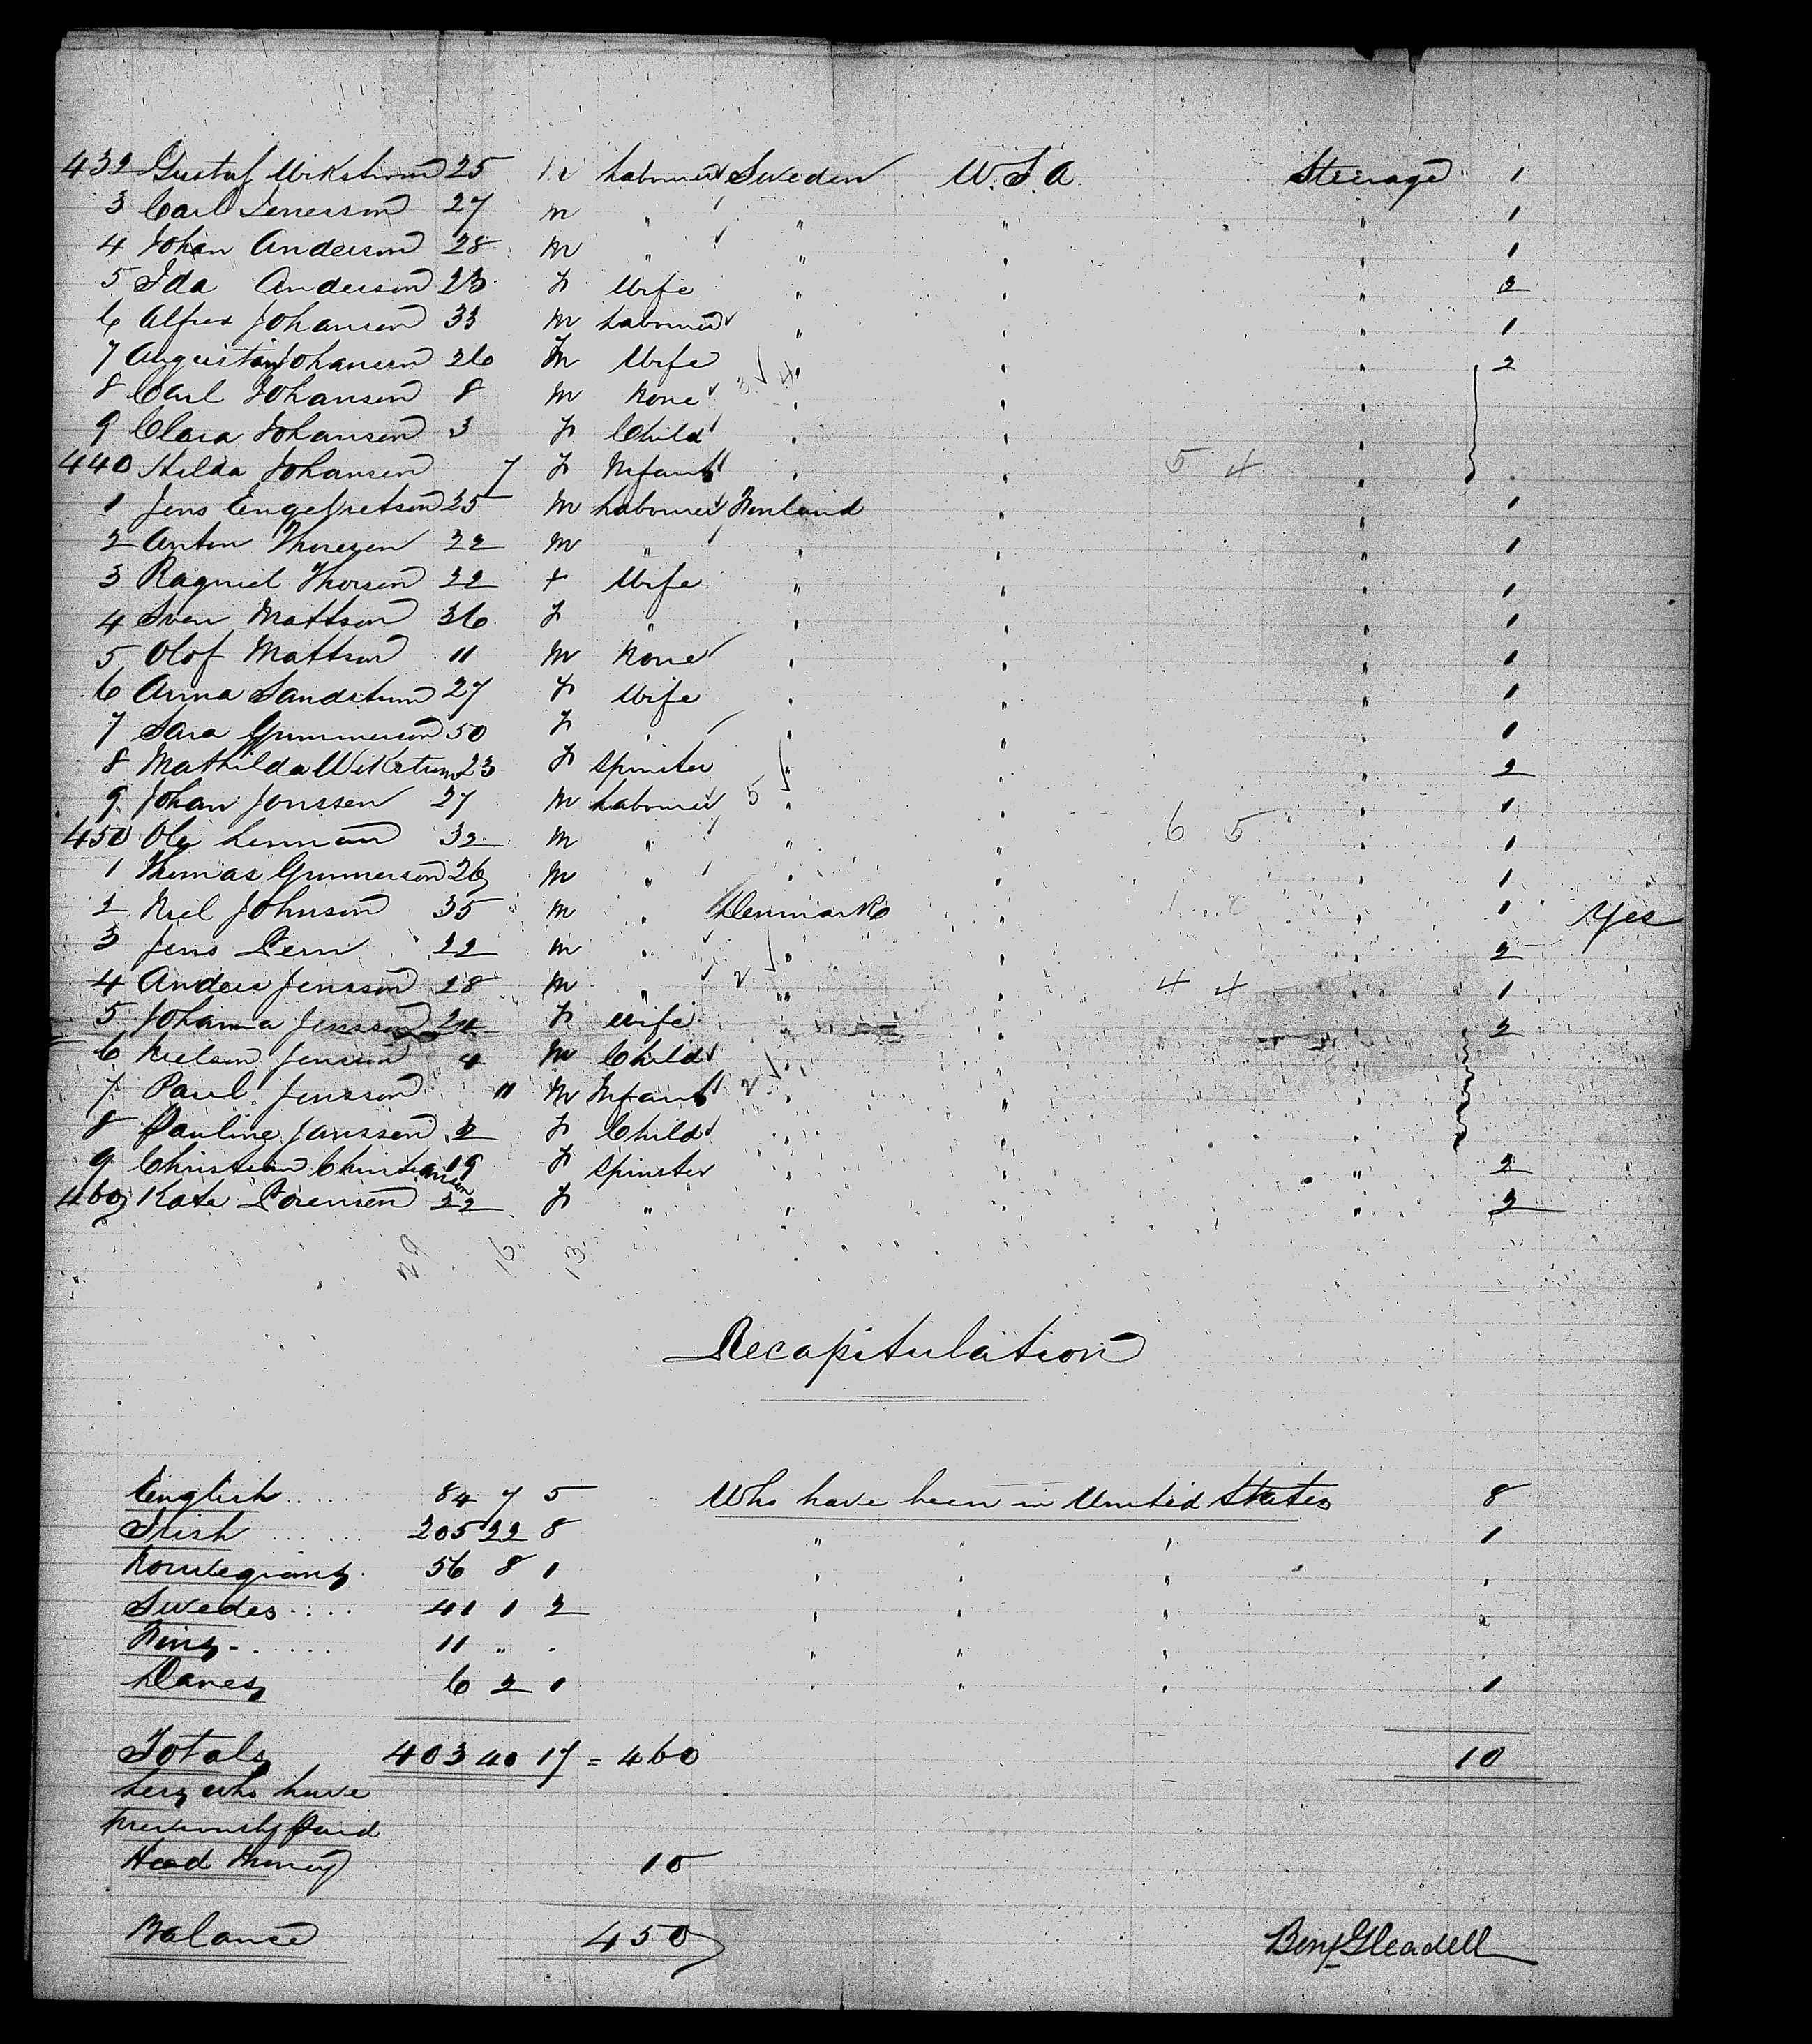 432 Gustaf Wikstrom 25 M Labourer Sweden U.S.A. Steerage 1
3 Carl Jenersson 27 m " " " " 1
4 Johan Anderson 28 m " " " " 1
5 Ida Anderson 23 F Wife " " " 2
6 Alfred Johanson 33 M Labourer " " " 1
7 Johansen 26 F Wife " " " 2
8 Carl Johansen 8 M None " " "
9 Clara Johanson 3 F Child " " "
440 Hilda Johansen 7 F Infant " " 5 4 "
1 Jens 25 M Labourer Finland " " 1
2 Anton Thoresen 22 M " " " " 1
3 Thorsen 22 F Wife " " " 1
4 Sven Mattson 36 F " " " " 1
5 Olof Mattson 11 M None " " " 1
6 Anna Sandstum 27 F Wife " " " 1
7 Sara Gunnerson 50 F " " " " 1
8 Mathilda Wikstrum 23 F Spinster " " " 2
9 Johan Jonssen 27 M Labourer 5 " " " 1
450 Ole Lennan 32 M " " " 6 5 " 1
1 Thomas Gunnerson 26 M " " " " 1
2 Niel Johnson 35 M " Denmark " " 1 Yes
3 Jens 22 M " " " " 2
4 Anders Jensson 28 M " 2 " " 4 4 " 1
5 Johanna Jensson 24 F Wife " " " 2
6 Nielson Jenson 4 M Child " " "
7 Paul Jensson 11 M Infant 2 " " "
8 Pauline Janssen 2 F Child " " "
9 Christian Christianson 19 F Spinster " " " 2
460 Kate Sorensen 22 F " " " " 2
20 16 13
Recapitulation
English ..... 84 7 5 Who have been in United States 8
Irish ...... 205 22 8 " " " 1
Norwegians 56 8 1 " " " "
Swedes .... 41 1 2 " " " "
Fins ...... 11 " " " " " "
Danes 6 2 1 " " " 1
Totals 403 40 17 = 460 10
Less who have
previously paid
Head Money 10
Balance 450 Benj Gleadell